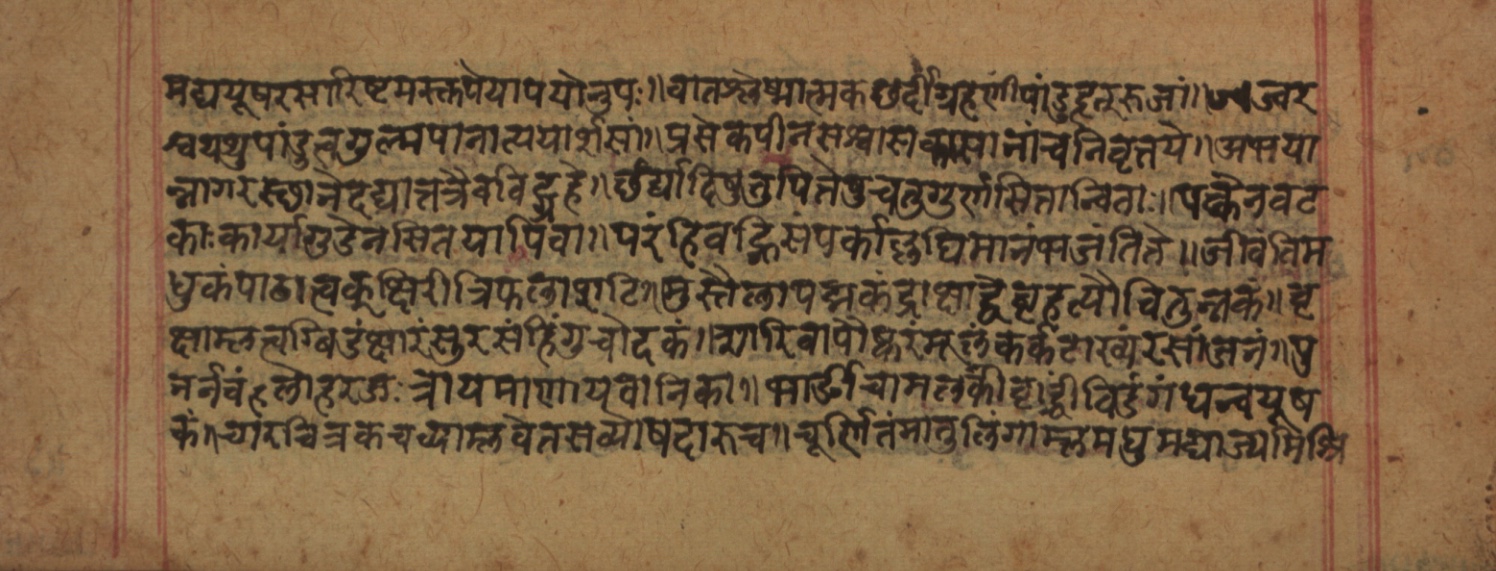 मद्ययूषरसारिष्टमस्तुपेयापयोनुपः॥वातश्लेष्मात्मकछर्दीग्रहणीपांडुहृत्रुजां॥ज्वर
श्वयथुपांडुत्वगुल्मपानात्ययार्शसां॥प्रसेकपीनसश्वासकासानांचनिवृत्तये॥अभया
न्नागरस्थानेदद्यात्तत्रैवविड्ग्रहे॥छर्द्यादिषुतुपित्तेषुचतुर्गुणसितान्विताः।पक्केनवट
काःकार्यागुडेनसितयापिवा॥परंहिवह्निसंपर्काल्लघिमानंभजंतिते॥जीवंतिम
धुकंपाठात्वक्क्षिरीत्रिफलाशटि॥मुस्तैलापद्मकंद्राक्षाद्वेबृहत्यौवितुन्नकं॥वृ
क्षाम्लत्वग्विडंक्षारंसुरसंहिंगुचोदकं।सारिवापौष्करंमूलंकर्कटाख्यंरसांजनं॥पु
नर्नवंलोहरजःत्रायमाणायवानिका॥भार्ङीचामलकीवृद्धीविडंगंधन्वयूष
कं॥क्षारचित्रकचव्याम्लवेतसव्योषदारुच॥चूर्णितंमातुलिंगाम्लमधुमद्याज्यमिश्रि